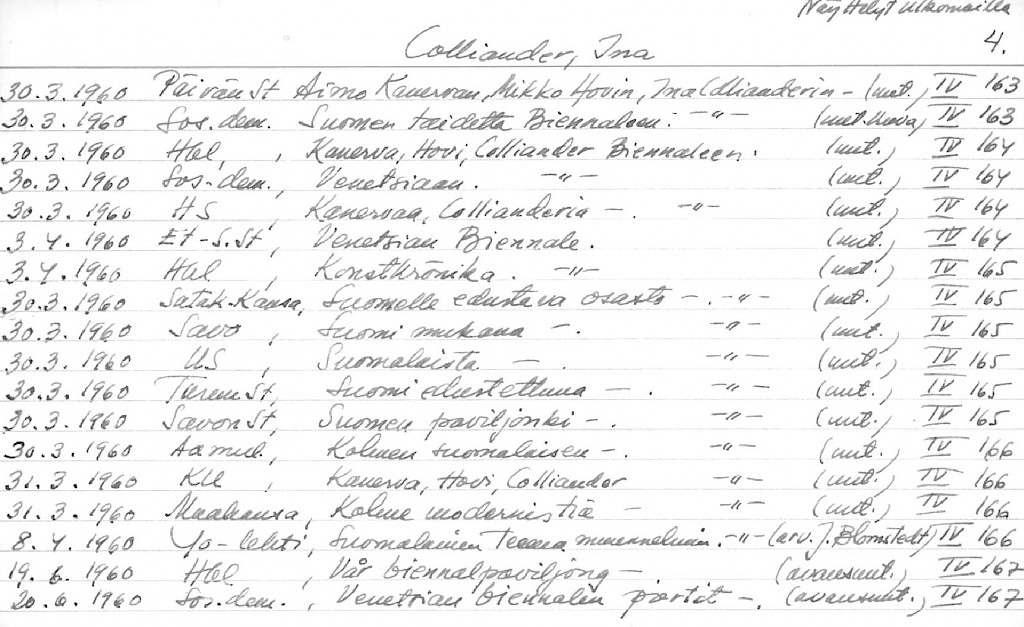 Näyttelyt Ulkomailla
4.
Colliander, Ina
30.3.1960 Päivän St Aimo Kanervan, Mikko Hovin, Ina Collianderin - (uut.) IV 163
30.3.1960 Sos.dem. Suomen taidetta Biennaleen: -"- (uut.kuva) IV 163
30.3.1960 Hbl, , Kanerva, Hovi, Colliander Biennaleen. (uut.) IV 164
30.3.1960 Sos.dem., Venetsiaan. -"- (uut.) IV 164
30.3.1960 HS , Kanervaa, Collianderia -. -"- (uut.) IV 164
3.4.1960 Et-S.St, Venetsian Biennale. (uut.) IV 164
3.4.1960 Hbl , Konstkrönika. -"- (uut.) IV 165
30.3.1960 Satak.Kansa, Suomelle edustava osasto -. -"- (uut.) IV 165
30.3.1960 Savo , Suomi mukana -. -"- (uut.) IV 165
30.3.1960 US , Suomalaista - -"- (uut.) IV 165
30.3.1960 Turun St, Suomi edustettuna -. -"- (uut.) IV 165
30.3.1960 Savon St, Suomen paviljonki -. -"- (uut.) IV 165
30.3.1960 Aamul., Kolmen suomalaisen -. -"- (uut.) IV 166
31.3.1960 KU , Kanerva, Hovi, Colliander -"- (uut.) IV 166
31.3.1960 Maakansa, Kolme modernistia - -"- (uut.) IV 166
8.4.1960 Yo-lehti, Suomalainen -"- (arv. J. Blomstedt) IV 166
19.6.1960 Hbl , Vår biennalpaviljong -. (avausuut.) IV 167
20.6.1960 Sos.dem. , Venetsian biennalen portit -. (avausuut.) IV 167